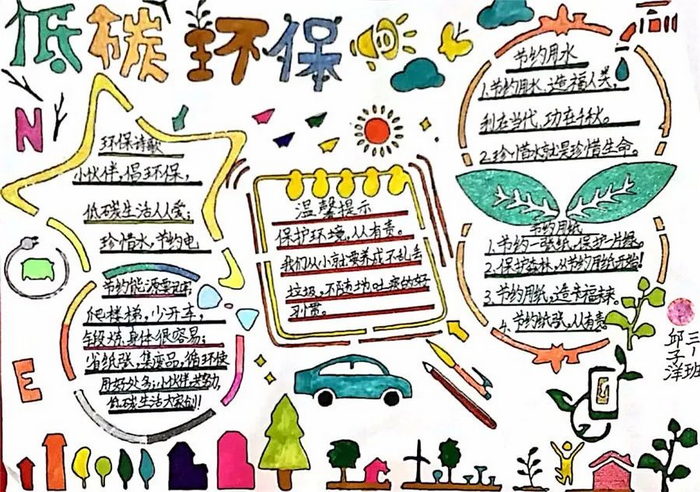 低碳环保
环保诗歌
小伙伴,倡环保,
低碳生活人人爱;
珍惜水,节约电
爬楼梯,少开车,
锻炼身体很容易;
省纸张,集废品,循环使
用好处多;小伙伴,齐努力,
低碳生活大家创!
温馨提示
保护环境,人人有责。
我们从小就要养成不乱丢
垃圾,不随地吐痰的好
习惯。
节约用水
1.节约用水,造福人类,
利在当代,功在千秋。
2.珍惜水就是珍惜生命。
节约用纸
1.节约一张纸,保护一片绿。
2.保护森林,从节约用纸开始!
3.节约用纸,造幸福
4.节约纸张,人有责
三班
邱子洋
N
E